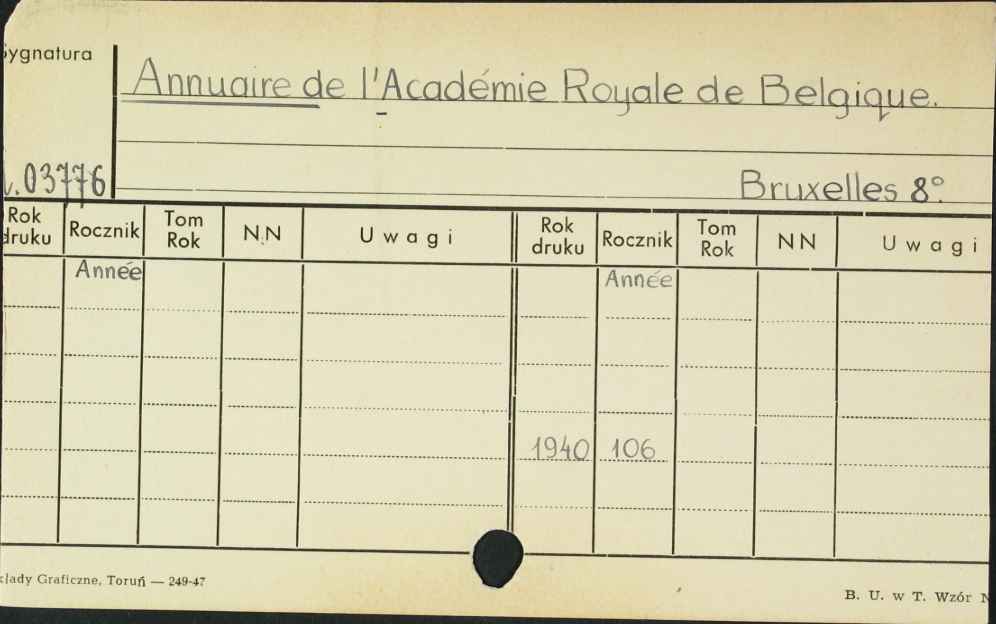 Sygnatura
Annuaire de l'Académie Royale de Belgique.
03776
Bruxelles 8°.
Rok druku Rocznik Tom Rok N.N Uwagi Rok druku Rocznik Tom Rok NN Uwagi
Année Année
1940 106
Graficzne, Toruń — 249-47
B. U. w T. Wzór